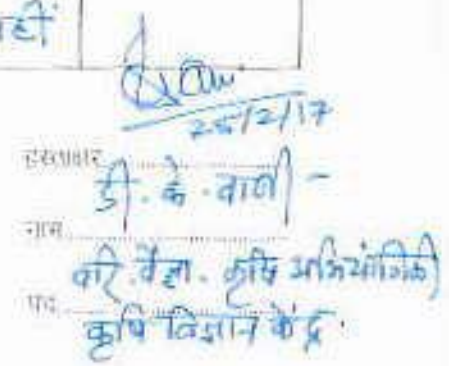 हीं
25/2/17
हस्ताक्षर
डी. के. वाणी
नाम
वरि. वैज्ञा. कृषि अभियांत्रिकी
पद
कृषि विज्ञान केंद्र.